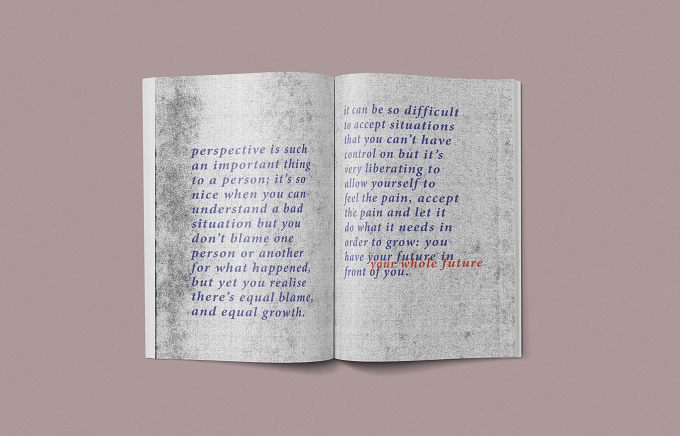 perspective is such
an important thing
to a person; it's so
nice when you can
understand a bad
situation but you
don't blame one
person or another
for what happened,
but yet you realise
there's equal blame,
and equal growth.
it can be so difficult
to accept situations
that you can't have
control on but it's
very liberating to
allow yourself to
feel the pain, accept
the pain and let it
do what it needs in
order to grow: you
have your future in
front of you.
your whole future